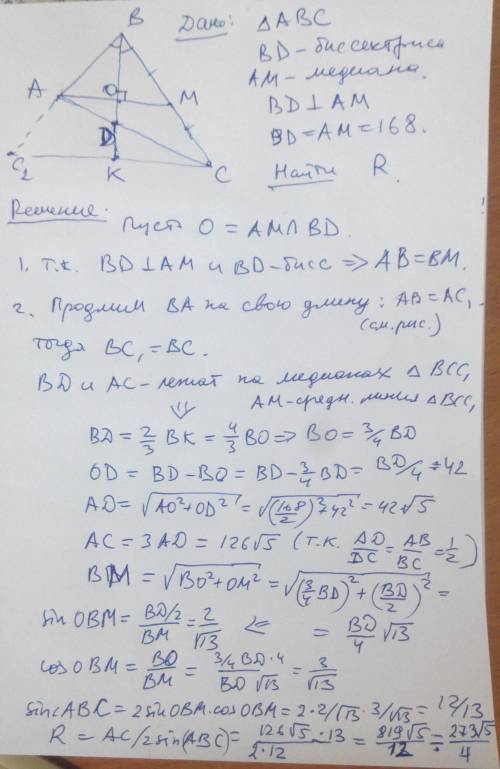 B
A
O
M
D
C₁
K
C
Дано: △ABC
BD - биссектриса
AM - медиана.
BD ⊥ AM
BD = AM = 168.
Найти R.
Решение:
Пусть O = AM ∩ BD.
1. т.к. BD ⊥ AM и BD - бисс ⇒ AB = BM.
2. Продлим BA на свою длину: AB = AC₁
(см. рис.)
тогда BC₁ = BC.
BD и AC - лежат на медианах △ BCC₁
AM - средн. линия △BCC₁
⇓
BD = 2/3 BK = 4/3 BO ⇒ BO = 3/4 BD
OD = BD - BO = BD - 3/4 BD = BD/4 = 42
AD = √(AO² + OD²) = √((168/2)² + 42²) = 42√5
AC = 3AD = 126√5 (т.к. AD/DC = AB/BC = 1/2)
BM = √(BO² + OM²) = √((3/4 BD)² + (BD/2)²) =
sin OBM = (BD/2)/BM = 2/√13 ⇐ = BD/4 √13
cos OBM = BO/BM = (3/4 BD · 4)/(BD √13) = 3/√13
sin(ABC) = 2 sin OBM · cos OBM = 2 · 2/√13 · 3/√13 = 12/13
R = AC/2sin(ABC) = 126√5/(2·12) · 13 = 819√5/12 = 273√5/4